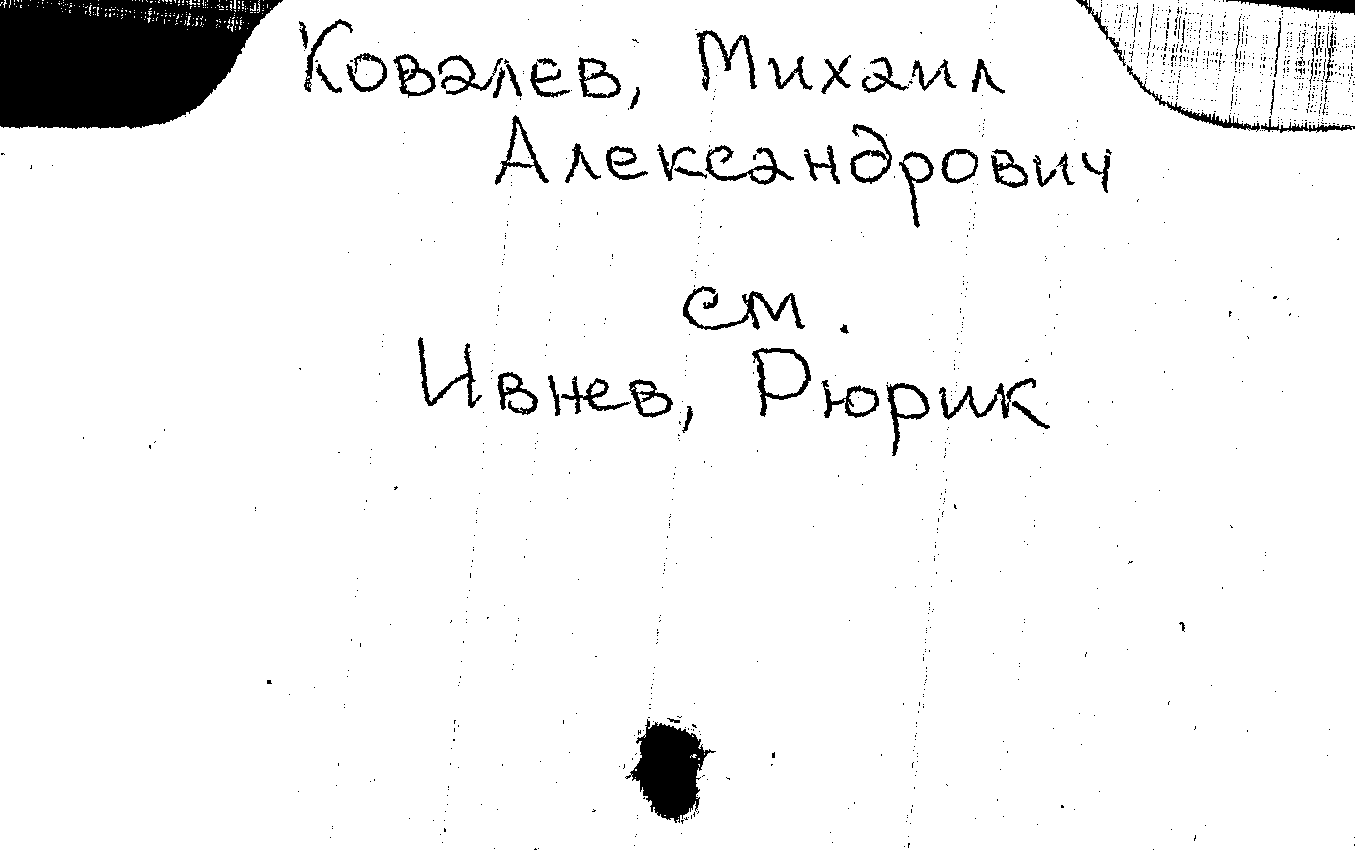 Ковалев, Михаил
Александрович
см.
Ивнев, Рюрик